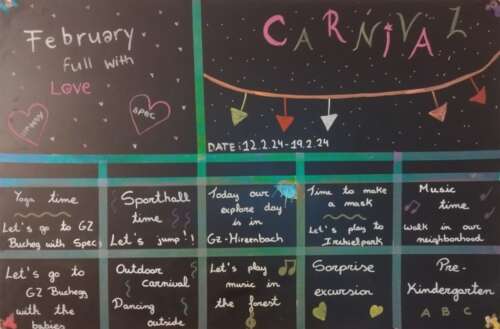 February
full with
Love
Spec
CARNIVAL
DATE: 12.2.24-19.2.24
Yoga time
Let's go to GZ
Bucheg with Spec
Sporthall
time
Let's jump!!
Today our
explore day
is in
Gz-Hirzenbach
Time to make
a mask
Let's play to
Irchielpark
Music
time
Walk in our
neighborhood
Let's go to
GZ Buchegg
with the
babies
Outdoor
carnival
Dancing
outside
Let's play
music in
the forest
Sorprise
excursion
Pre-
Kindergarten
A B C